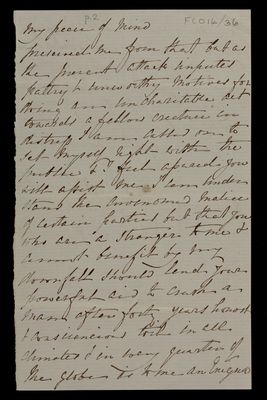 p.2
FCO16/36
My peace of Mind
preserved me from that but as
the present attack imputes
paltry & unworthy Motives for
doing an uncharitable act
towards a fellow creature in
distress I am called on to
set myself right with the
public & I feel assured you
will assist me. I can under
stand the envenomed Malice
of certain parties but that you
who are a Stranger to me &
cannot benefit by my
downfall should lend your
powerful aid to crush a
man after forty years honest
& conscientious toil in all
climates & in every quarter of
the globe is to me an Enigma